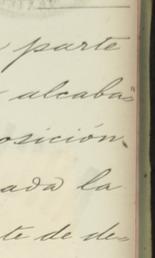 parte
alcaba=
osición.
ada la
te de de=